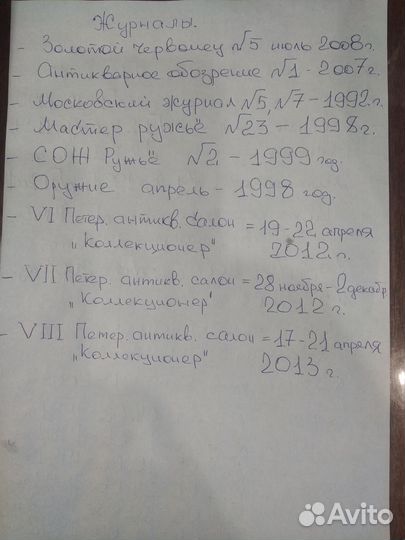 Журналы.
- Золотой червонец №5 июль 2008 г.
- Антикварное обозрение №1 - 2007 г.
- Московский журнал №5, №7 - 1992 г.
- Мастер ружьё №23 - 1998 г.
- СОЖ Ружьё №2 - 1999 год.
- Оружие апрель - 1998 год.
- VI Петер. антикв. салон = 19-22 апреля
„Коллекционер" 2012 г.
- VII Петер. антикв. салон = 28 ноября - 2 декабр.
„Коллекционер" 2012 г.
- VIII Петер. антикв. салон = 17-21 апреля
„Коллекционер" 2013 г.
Avito